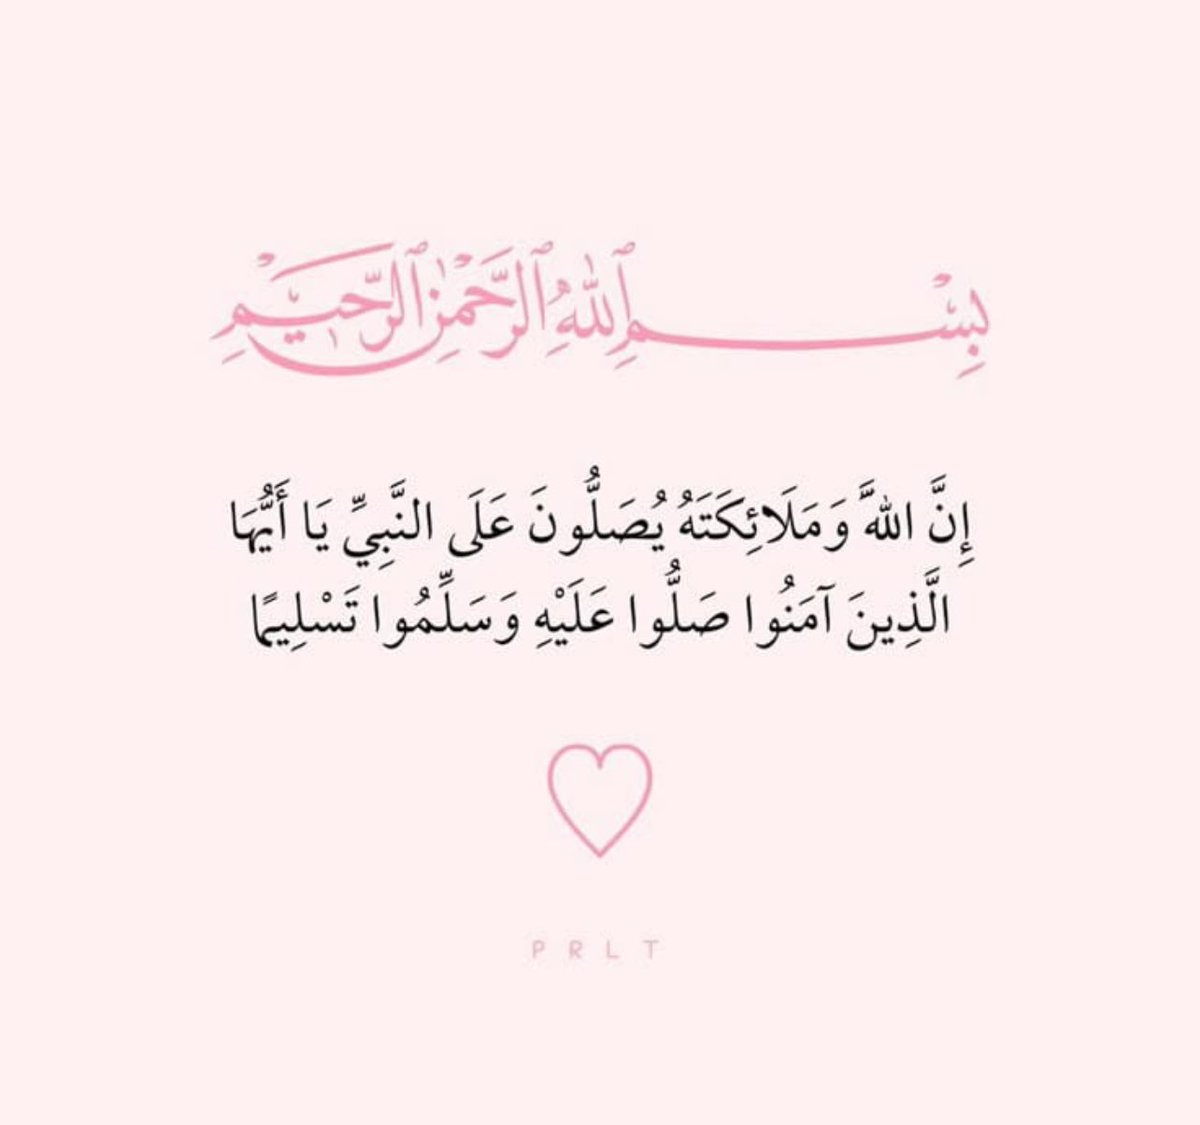 بِسْمِ ٱللَّهِ ٱلرَّحْمَٰنِ ٱلرَّحِيمِ
إِنَّ اللَّهَ وَمَلَائِكَتَهُ يُصَلُّونَ عَلَى النَّبِيِّ يَا أَيُّهَا
الَّذِينَ آمَنُوا صَلُّوا عَلَيْهِ وَسَلِّمُوا تَسْلِيمًا
PRLT